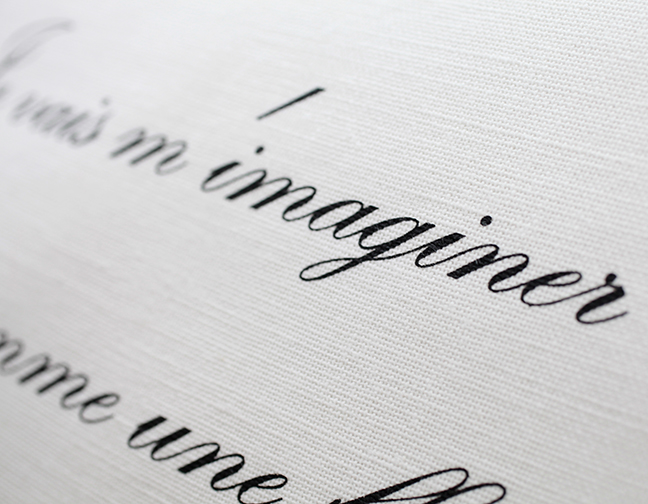 vais m'imaginer
mme une